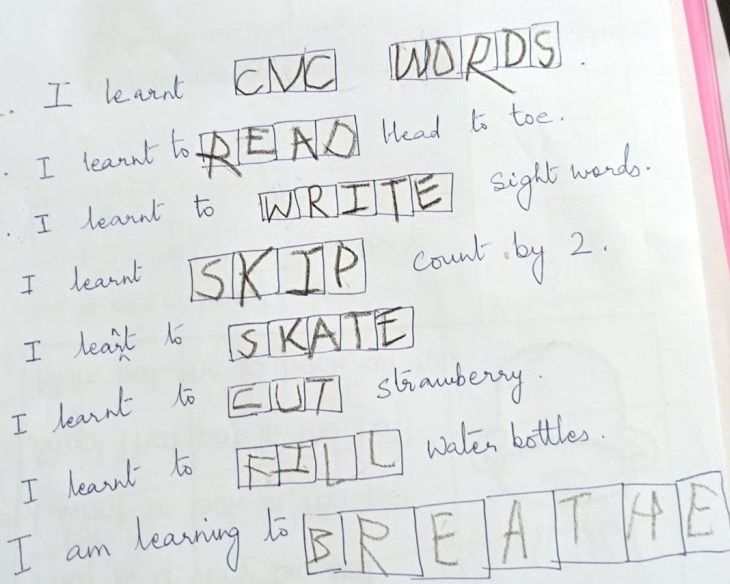 I learnt CVC WORDS.
I learnt to READ Head to toe.
I learnt to WRITE sight words.
I learnt SKIP count by 2.
I learnt to SKATE
I learnt to CUT strawberry.
I learnt to FILL water bottles.
I am learning to BREATHE